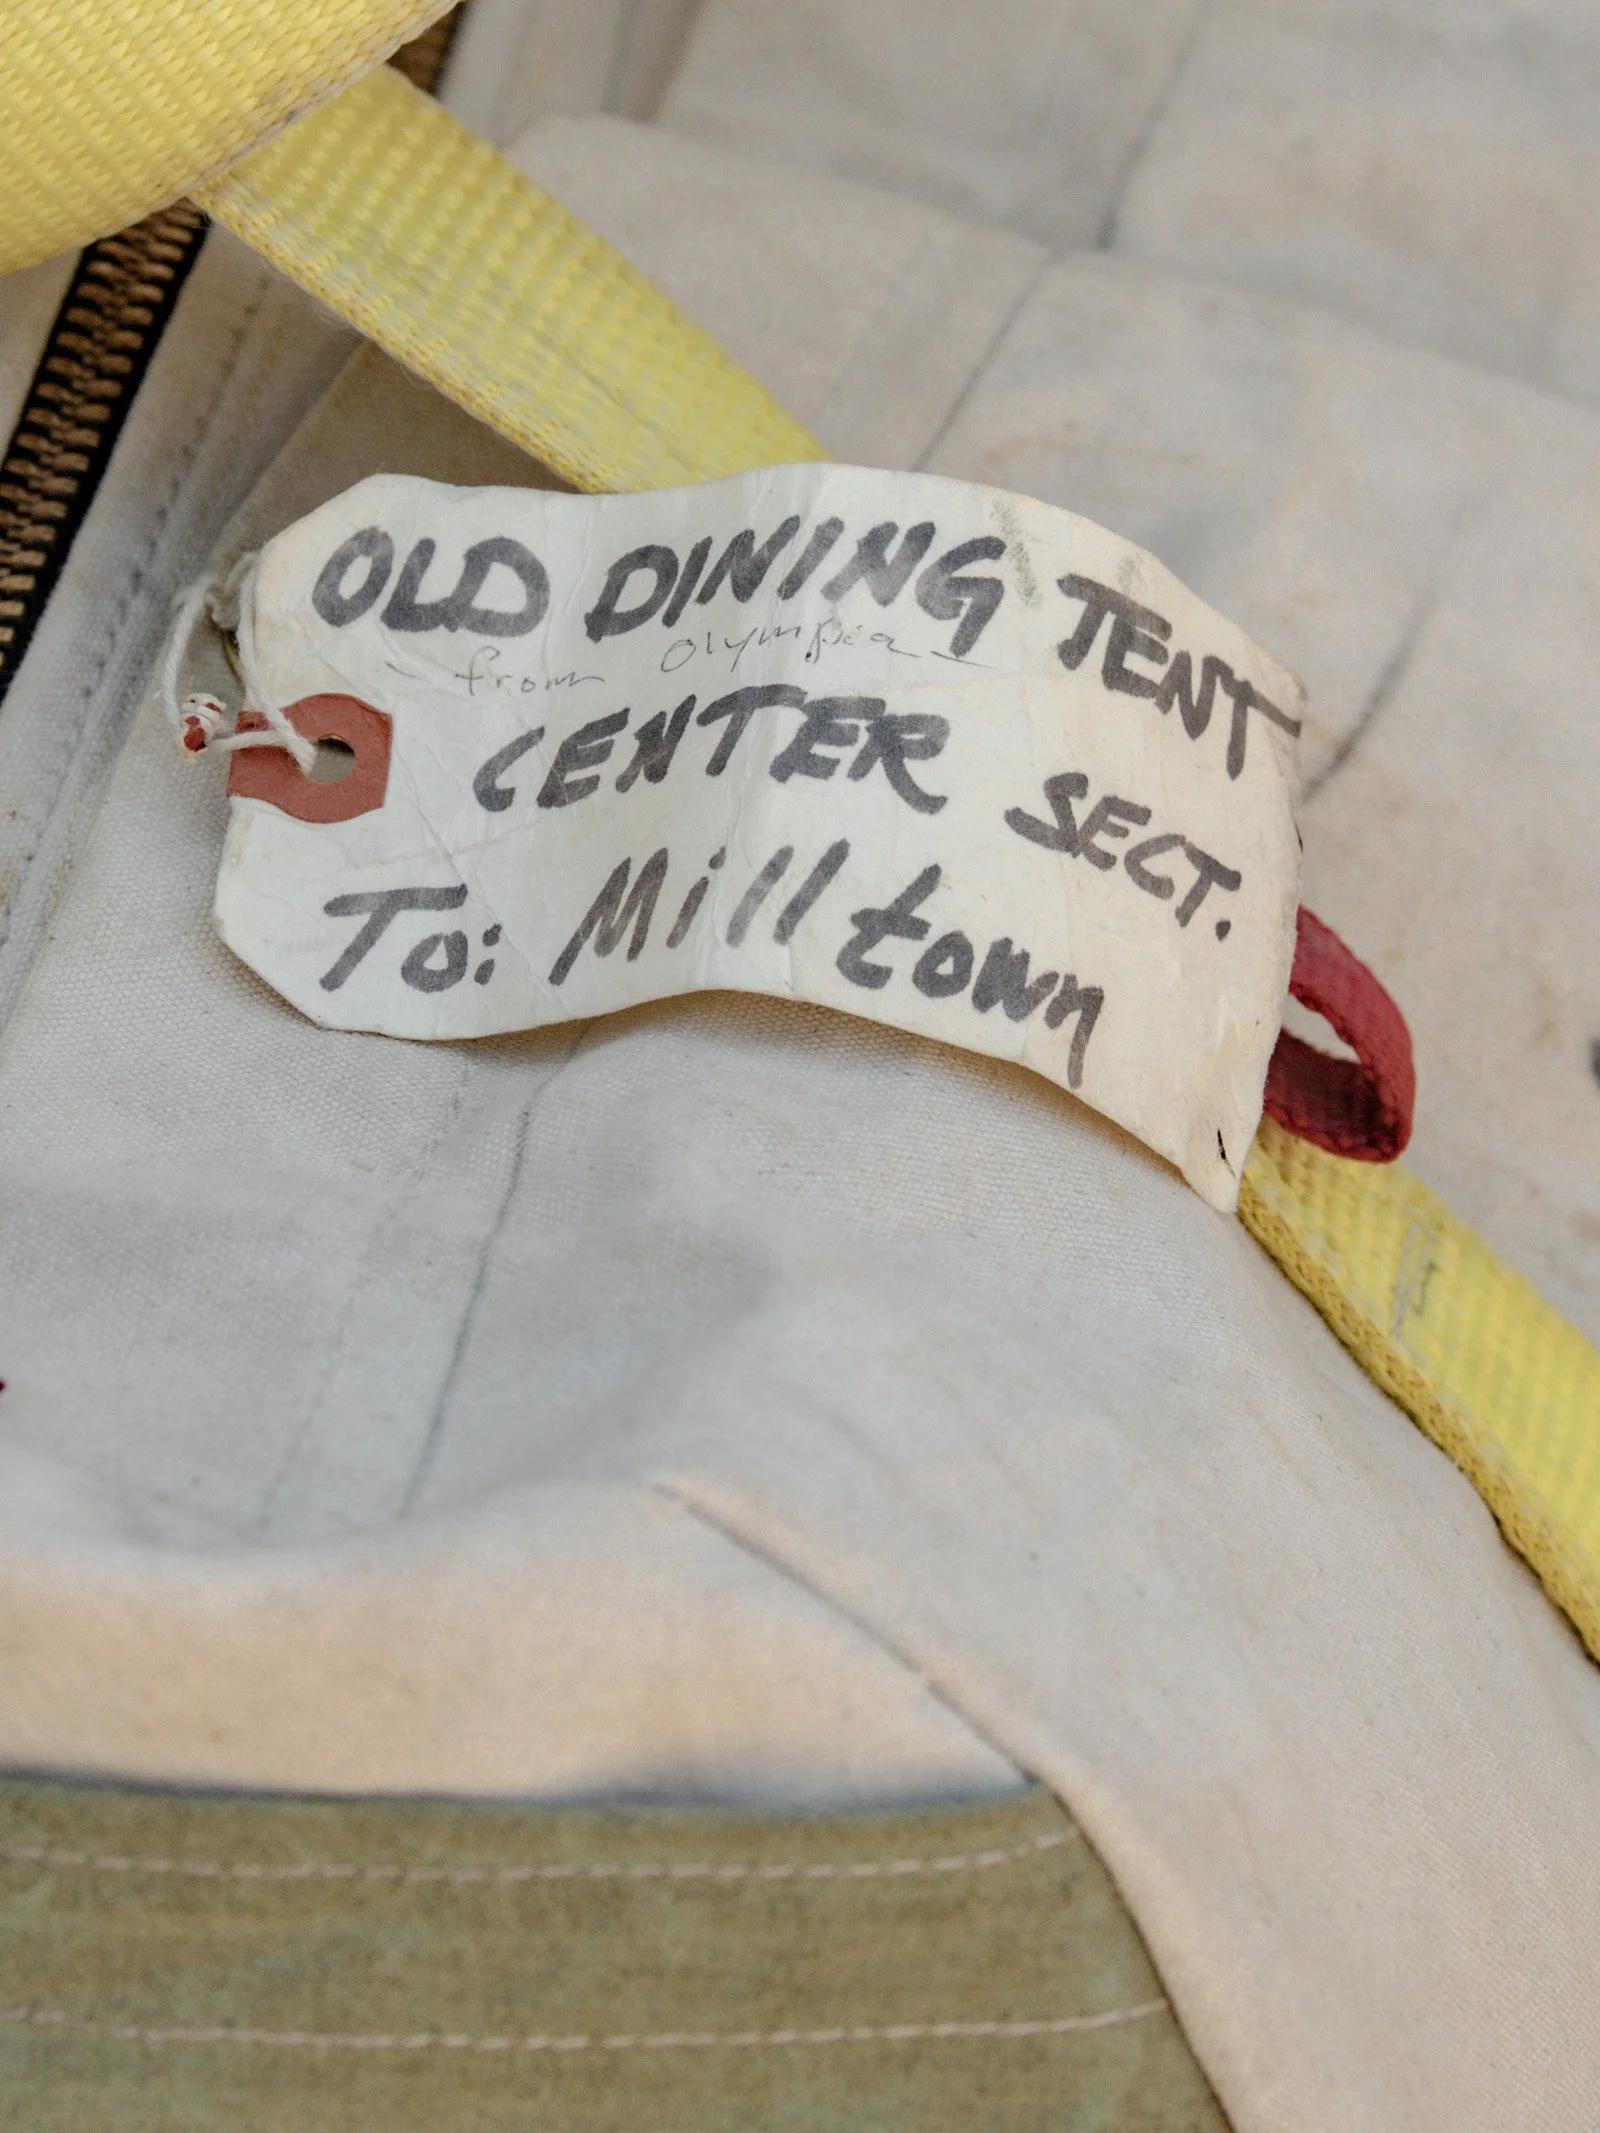 OLD DINING TENT
- from Olympia -
CENTER SECT.
To: Milltown